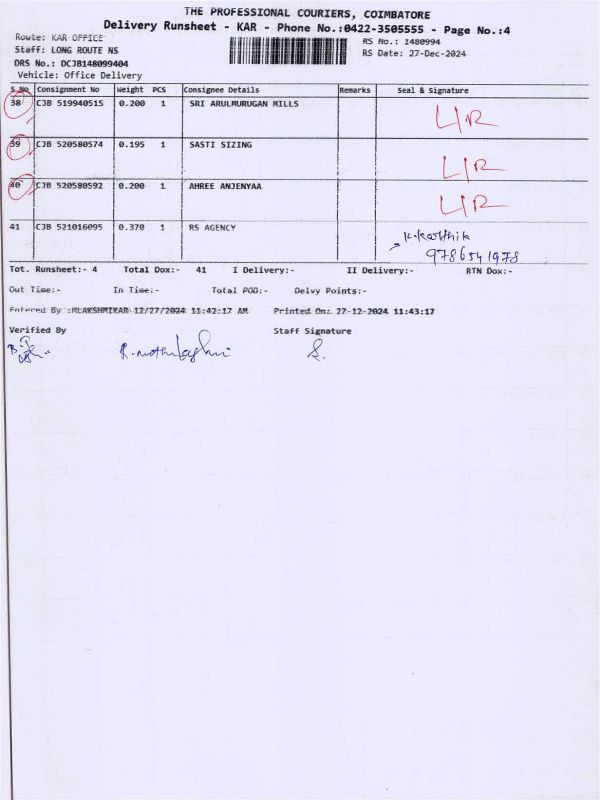 THE PROFESSIONAL COURIERS, COIMBATORE
Delivery Runsheet - KAR - Phone No.:0422-3505555 - Page No.:4
Route: KAR OFFICE
RS No.: 1480994
Staff: LONG ROUTE NS
RS Date: 27-Dec-2024
DRS No.: DCJB148099404
Vehicle: Office Delivery
S.No Consignment No Weight PCS Consignee Details Remarks Seal & Signature
38 CJB 519940515 0.200 1 SRI ARULMURUGAN MILLS
39 CJB 520580574 0.195 1 SASTI SIZING
40 CJB 520580592 0.200 1 AHREE ANJENYAA
41 CJB 521016095 0.370 1 RS AGENCY K.Karthik
9786541978
Tot. Runsheet:- 4 Total Dox:- 41 I Delivery:- II Delivery:- RTN Dox:-
Out Time:- In Time:- Total POD:- Delvy Points:-
Entered By : 12/27/2024 11:42:17 AM Printed On: 27-12-2024 11:43:17
Verified By Staff Signature